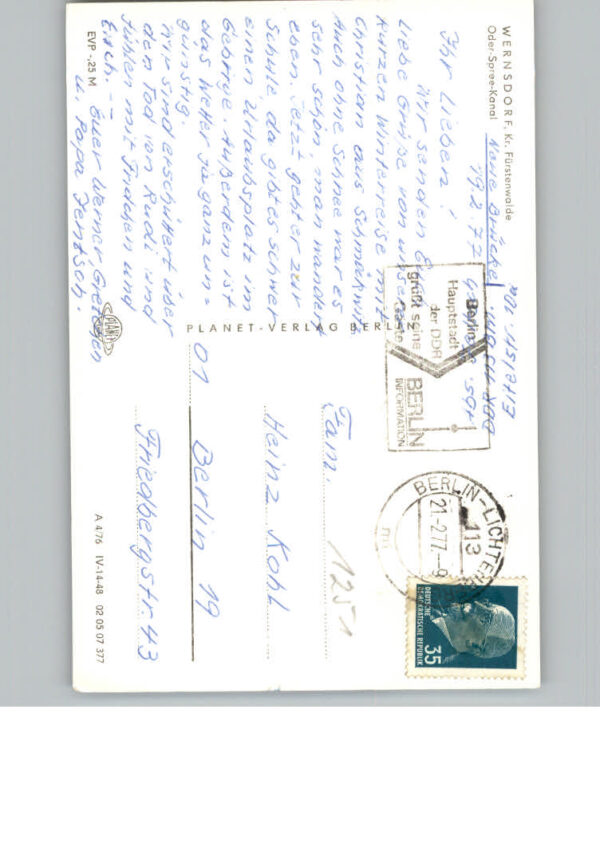 WERNSDORF, Kr. Fürstenwalde
Oder-Spree-Kanal
Neue Brücke
19.2.77
Ihr Lieben!
Wir senden Euch
Liebe Grüße von unserer
kurzen Winterreise mit
Christian aus Schmöckwitz
Auch ohne Schnee war es
sehr schön, man wandert
eben. Jetzt geht er zur
Schule, da gibt es schwer
einen Urlaubsplatz im
Gebirge. Außerdem ist
das Wetter ja ganz un=
günstig.
Wir sind erschüttert über
den Tod von Rudi und
fühlen mit Frdchen und
Euch. –
Euer Werner, Gretchen
u. Papa Jentsch.
EVP -,25 M
PLANET
PLANET-VERLAG BERLIN
Berlin
Hauptstadt
der DDR
grüßt seine
Gäste
BERLIN
INFORMATION
BERLIN-LICHTENB
113
21-2.77-9
m
DEUTSCHE
DEMOKRATISCHE
REPUBLIK
35
Fam.
1251
Heinz Kohl
01 Berlin 19
Friedbergstr 43
A 4/76 IV-14-48 02 05 07 377